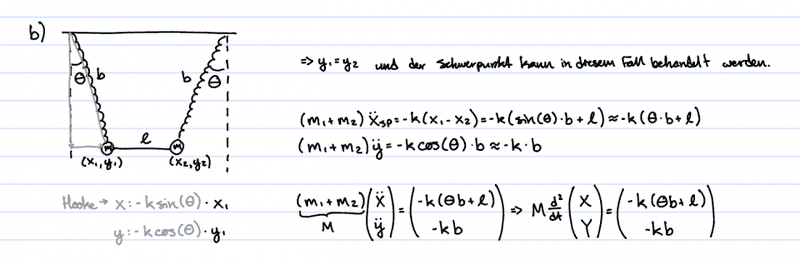 b)
θ b b θ
=> y₁=y₂ und der Schwerpunkt kann in diesem Fall behandelt werden.
m l m
(x₁,y₁) (x₂,y₂)
(m₁+m₂) ẍ_SP = -k(x₁-x₂) = -k(sin(θ)·b+l) ≈ -k(θ·b+l)
(m₁+m₂) ÿ = -k cos(θ)·b ≈ -k·b
Hooke → x: -k sin(θ)·x₁
y: -k cos(θ)·y₁
(m₁+m₂) (ẍ ÿ) = (-k(θb+l) -kb) => M d²/dt (X Y) = (-k(θb+l) -kb)
M